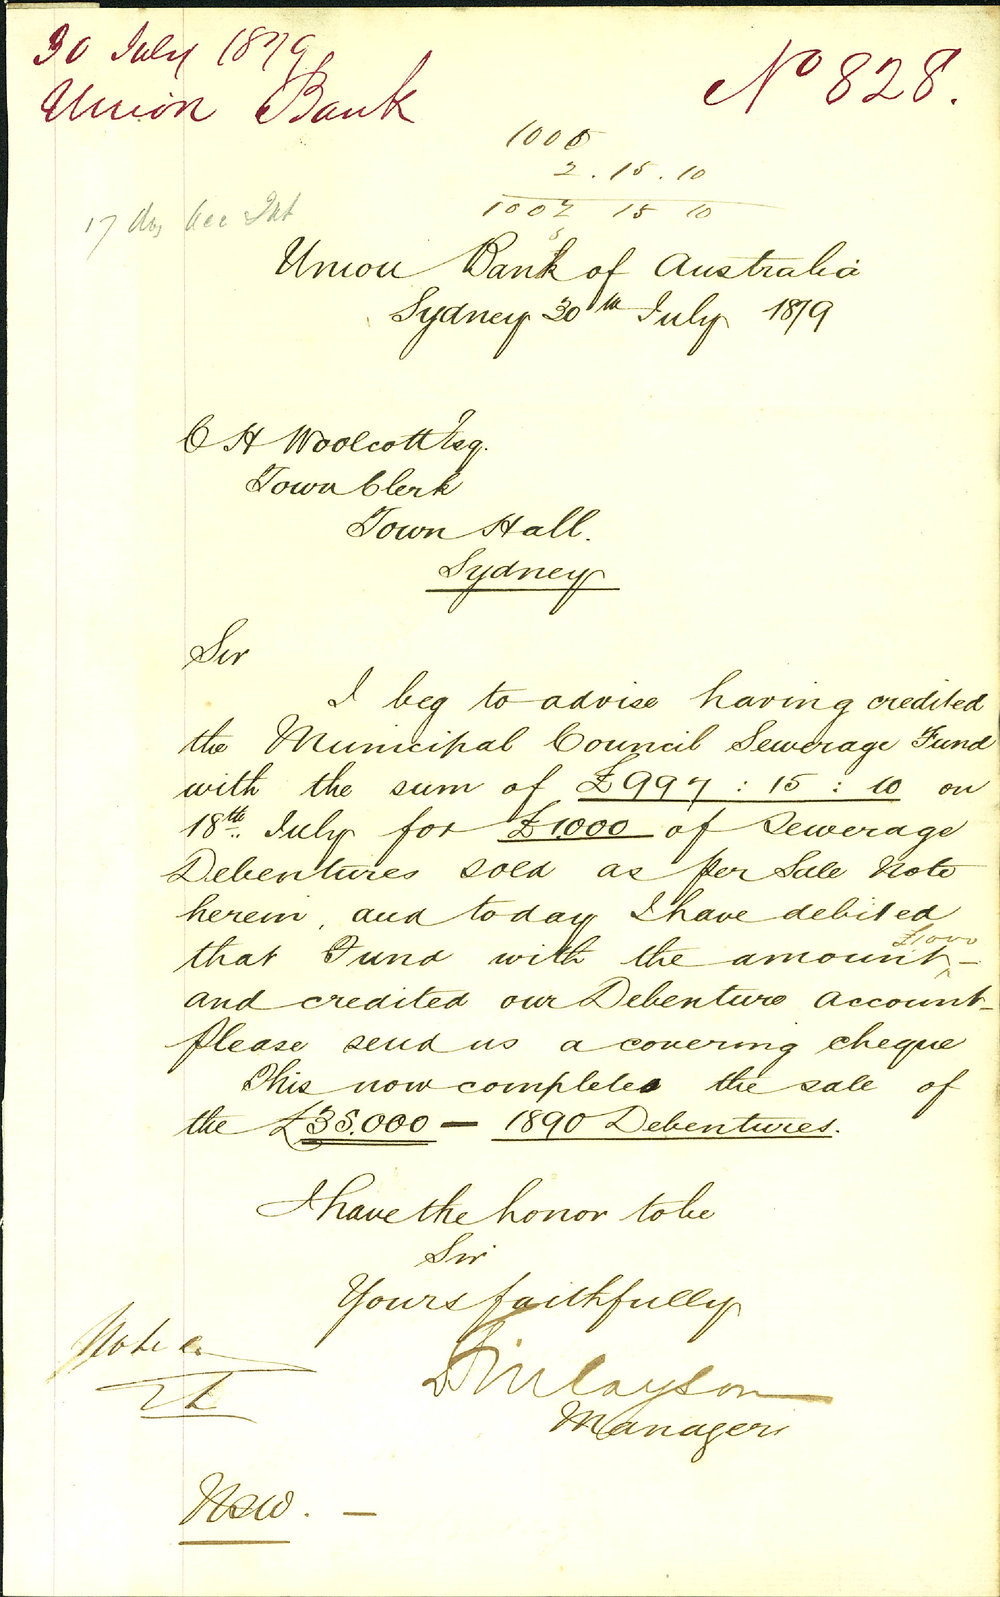 30 July 1879
Union Bank
No 828.
1000
2 . 15 . 10
1002 15 10
17 dys acc Int
Union Bank of Australia
Sydney 30th July 1879
C H Woolcott Esq.
Town Clerk
Town Hall.
Sydney
Sir
I beg to advise having credited
the Municipal Council Sewerage Fund
with the sum of £997 : 15 : 10 on
18th. July for £1000 of Sewerage
Debentures sold as per Sale Note
herein, and today I have debited
that Fund with the amount £1000
and credited our Debenture account
Please send us a covering cheque
This now completes the sale of
the £35.000 — 1890 Debentures.
I have the honor to be
Sir
Yours faithfully
Finlayson
Manager
Noted
NSW. —